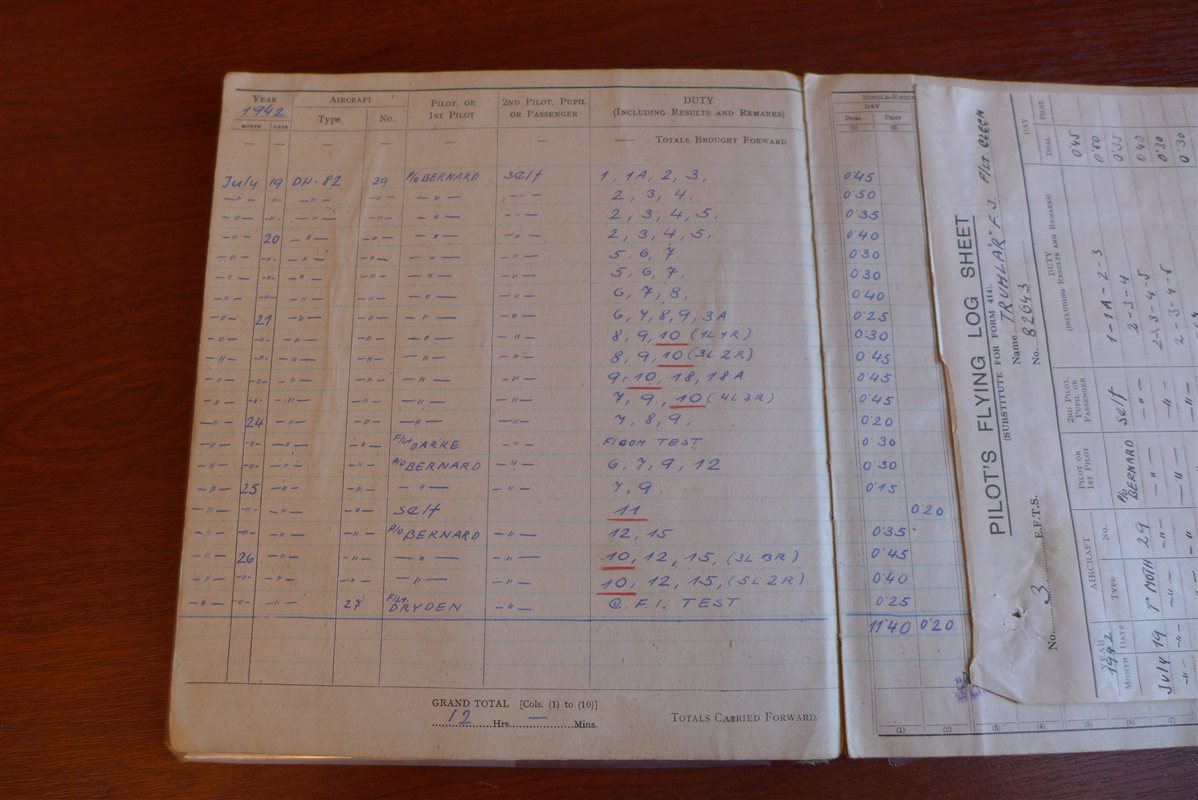 YEAR AIRCRAFT PILOT, OR 2ND PILOT, PUPIL DUTY SINGLE-ENGIN
1942 Type No. 1ST PILOT OR PASSENGER (INCLUDING RESULTS AND REMARKS) DAY
MONTH DATE DUAL PILOT
(1) (2)
— — — — — — — TOTALS BROUGHT FORWARD
July 19 DH-82 29 P/O BERNARD self 1, 1A, 2, 3. 0.45
—"— -"- —"— —"— —"— 2, 3, 4. 0.50
—"— -"- —"— —"— —"— —"— 2, 3, 4, 5. 0.35
—"— 20 —"— —"— —"— —"— 2, 3, 4, 5. 0.40
—"— -"- —"— —"— —"— —"— 5, 6, 7. 0.30
—"— -"- —"— —"— —"— —"— 5, 6, 7. 0.30
—"— -"- —"— —"— —"— —"— 6, 7, 8. 0.40
—"— 21 —"— —"— —"— —"— 6, 7, 8, 9, 3A 0.25
—"— -"- —"— —"— —"— —"— 8, 9, 10 (1L 1R) 0.30
—"— -"- —"— —"— —"— —"— 8, 9, 10 (3L 2R) 0.45
—"— -"- —"— —"— —"— —"— 9, 10, 18, 18A 0.45
—"— -"- —"— —"— —"— —"— 7, 9, 10 (4L 3R) 0.45
—"— 24 —"— —"— —"— —"— 7, 8, 9. 0.20
—"— -"- —"— —"— F/Lt DARKE —"— TEST 0.30
—"— -"- —"— —"— P/O BERNARD —"— 6, 7, 9, 12 0.30
—"— 25 —"— —"— —"— —"— 7, 9. 0.15
—"— -"- —"— —"— self 11 0.20
—"— -"- —"— —"— P/O BERNARD —"— 12, 15 0.35
—"— 26 —"— —"— —"— —"— 10, 12, 15, (3L 3R) 0.45
—"— -"- —"— —"— —"— —"— 10, 12, 15, (5L 2R) 0.40
—"— -"- —"— 27 F/Lt. DRYDEN —"— C.F.I. TEST 0.25
11.40 0.20
GRAND TOTAL [Cols. (1) to (10)]
12 Hrs. — Mins. TOTALS CARRIED FORWARD
(1) (2) (3) (4) (5) (6) (7)
PILOT'S FLYING LOG SHEET
(SUBSTITUTE FOR FORM 414).
Name TRUHLAR F. J. F/LT. CZECH
No. 82643
No. 3 E.F.T.S.
YEAR AIRCRAFT PILOT OR 2ND PILOT, DUTY DAY
1942 1ST PILOT PUPIL OR (INCLUDING RESULTS AND REMARKS)
MONTH DATE TYPE No. PASSENGER DUAL PILOT
July 19 T-MOTH 29 P/O BERNARD self 1-1A-2-3 0.45
-"- -"- —"— -"- —"— —"— 2-3-4 0.50
-"- -"- 2-3-4-5 0.35
2-3-4-5 0.40
0.30
0.30